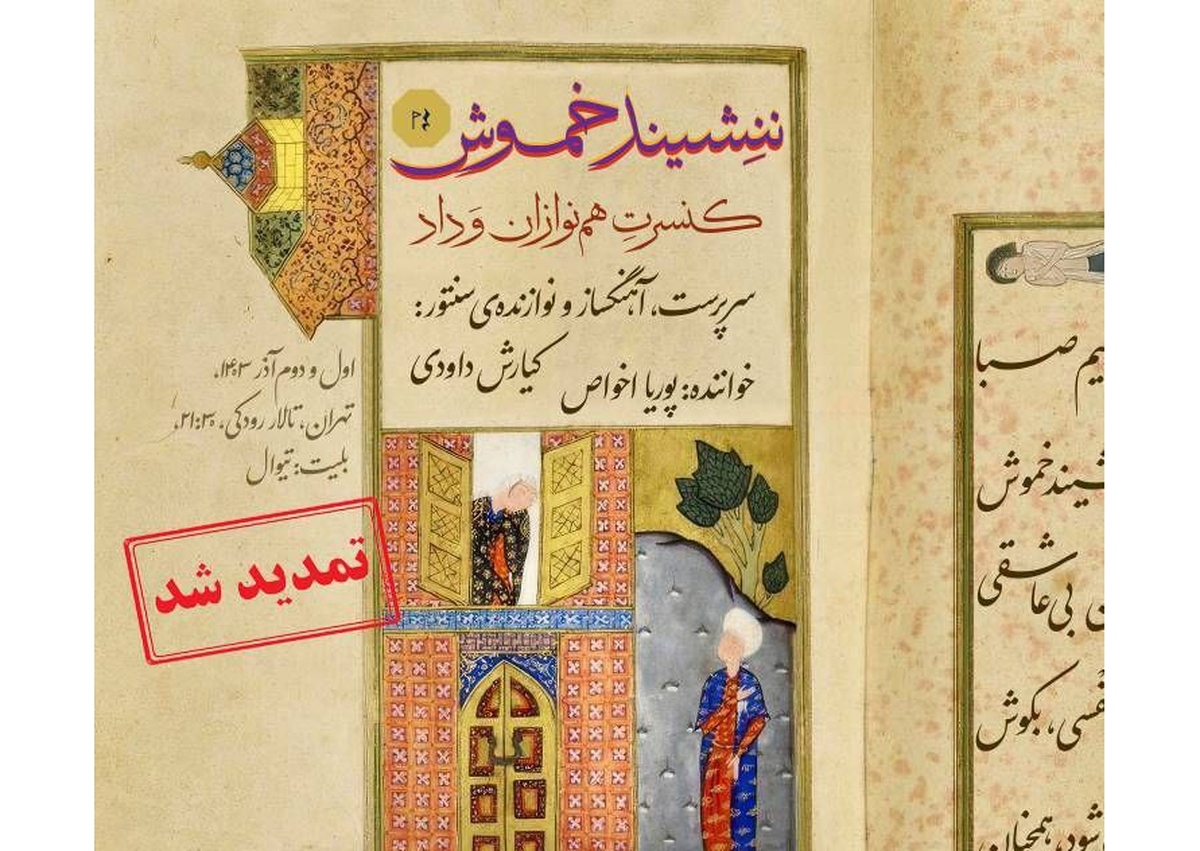 ننِشیند خموش
کنسرتِ هم‌نوازان وَداد
سرپرست، آهنگساز و نوازنده‌ی سنتور:
کیارش داودی
خواننده: پوریا اخواص
اول و دوم آذر ۱۴۰۳،
تهران، تالار رودکی، ۲۱:۳۰،
بلیت: تیوال
تمدید شد
صبا
خموش
بی عاشقی
بکوش
شود، همچنان